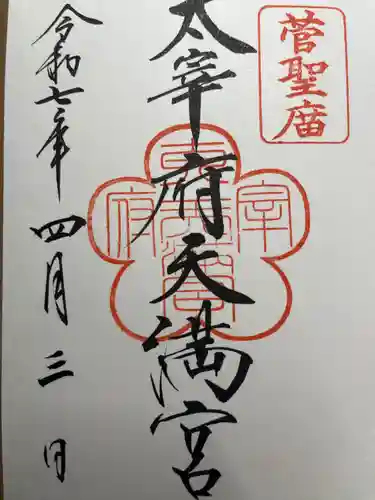 菅聖廟
太宰府天満宮
令和七年四月三日